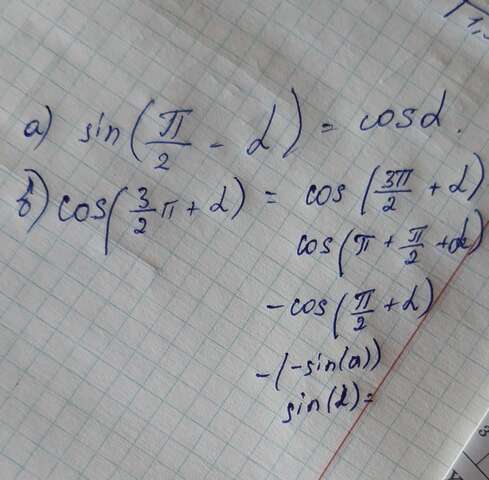 а) sin(π/2 - α) = cosα.
б) cos(3/2 π + α) = cos(3π/2 + α)
cos(π + π/2 + α)
-cos(π/2 + α)
-(-sin(a))
sin(α)=
3